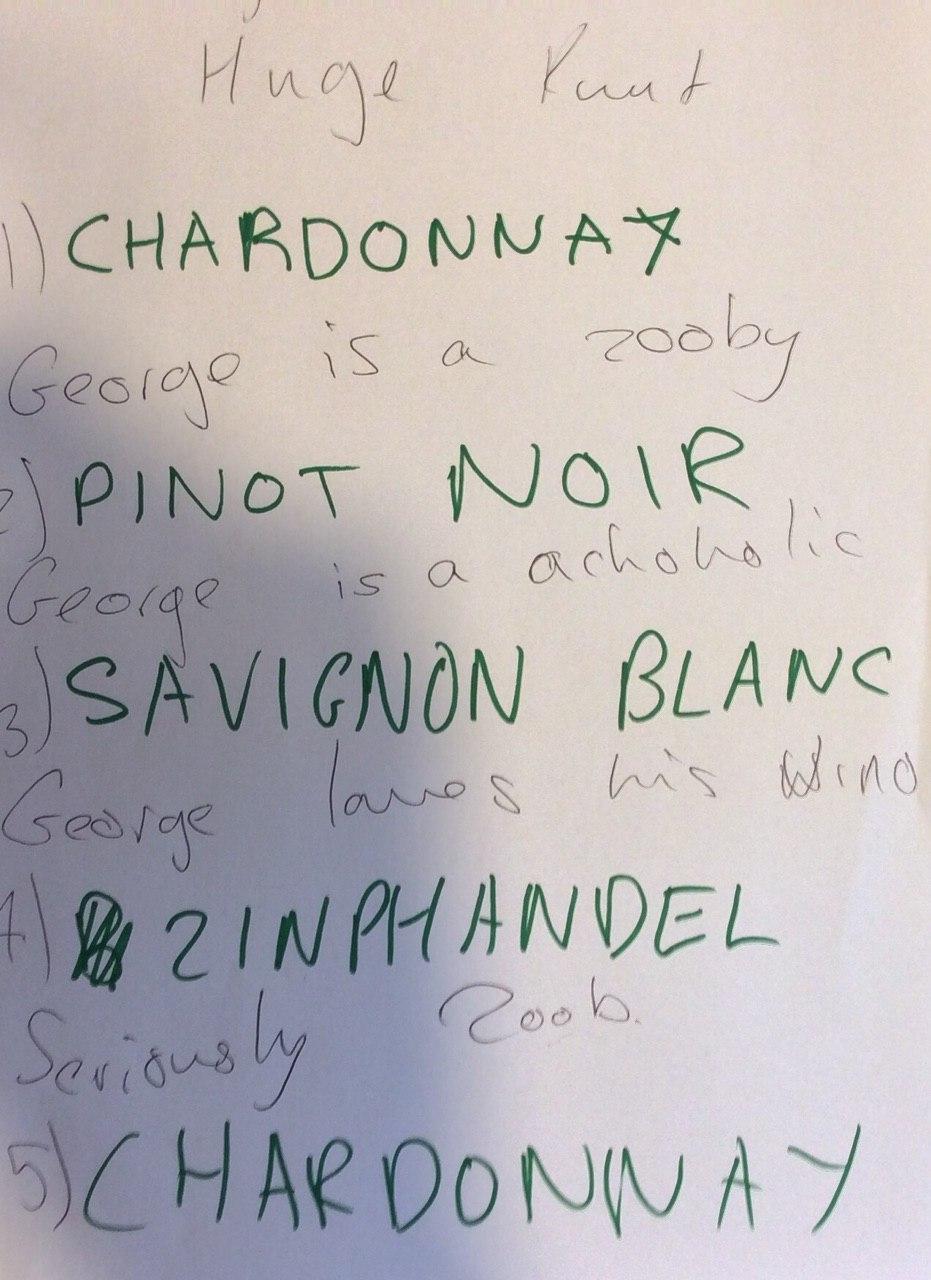 Huge Kunt
1) CHARDONNAY
George is a zooby
2) PINOT NOIR
George is a achoholic
3) SAVIGNON BLANC
George loves his Wino
4) ZINPHANDEL
Seriously Zoob.
5) CHARDONNAY